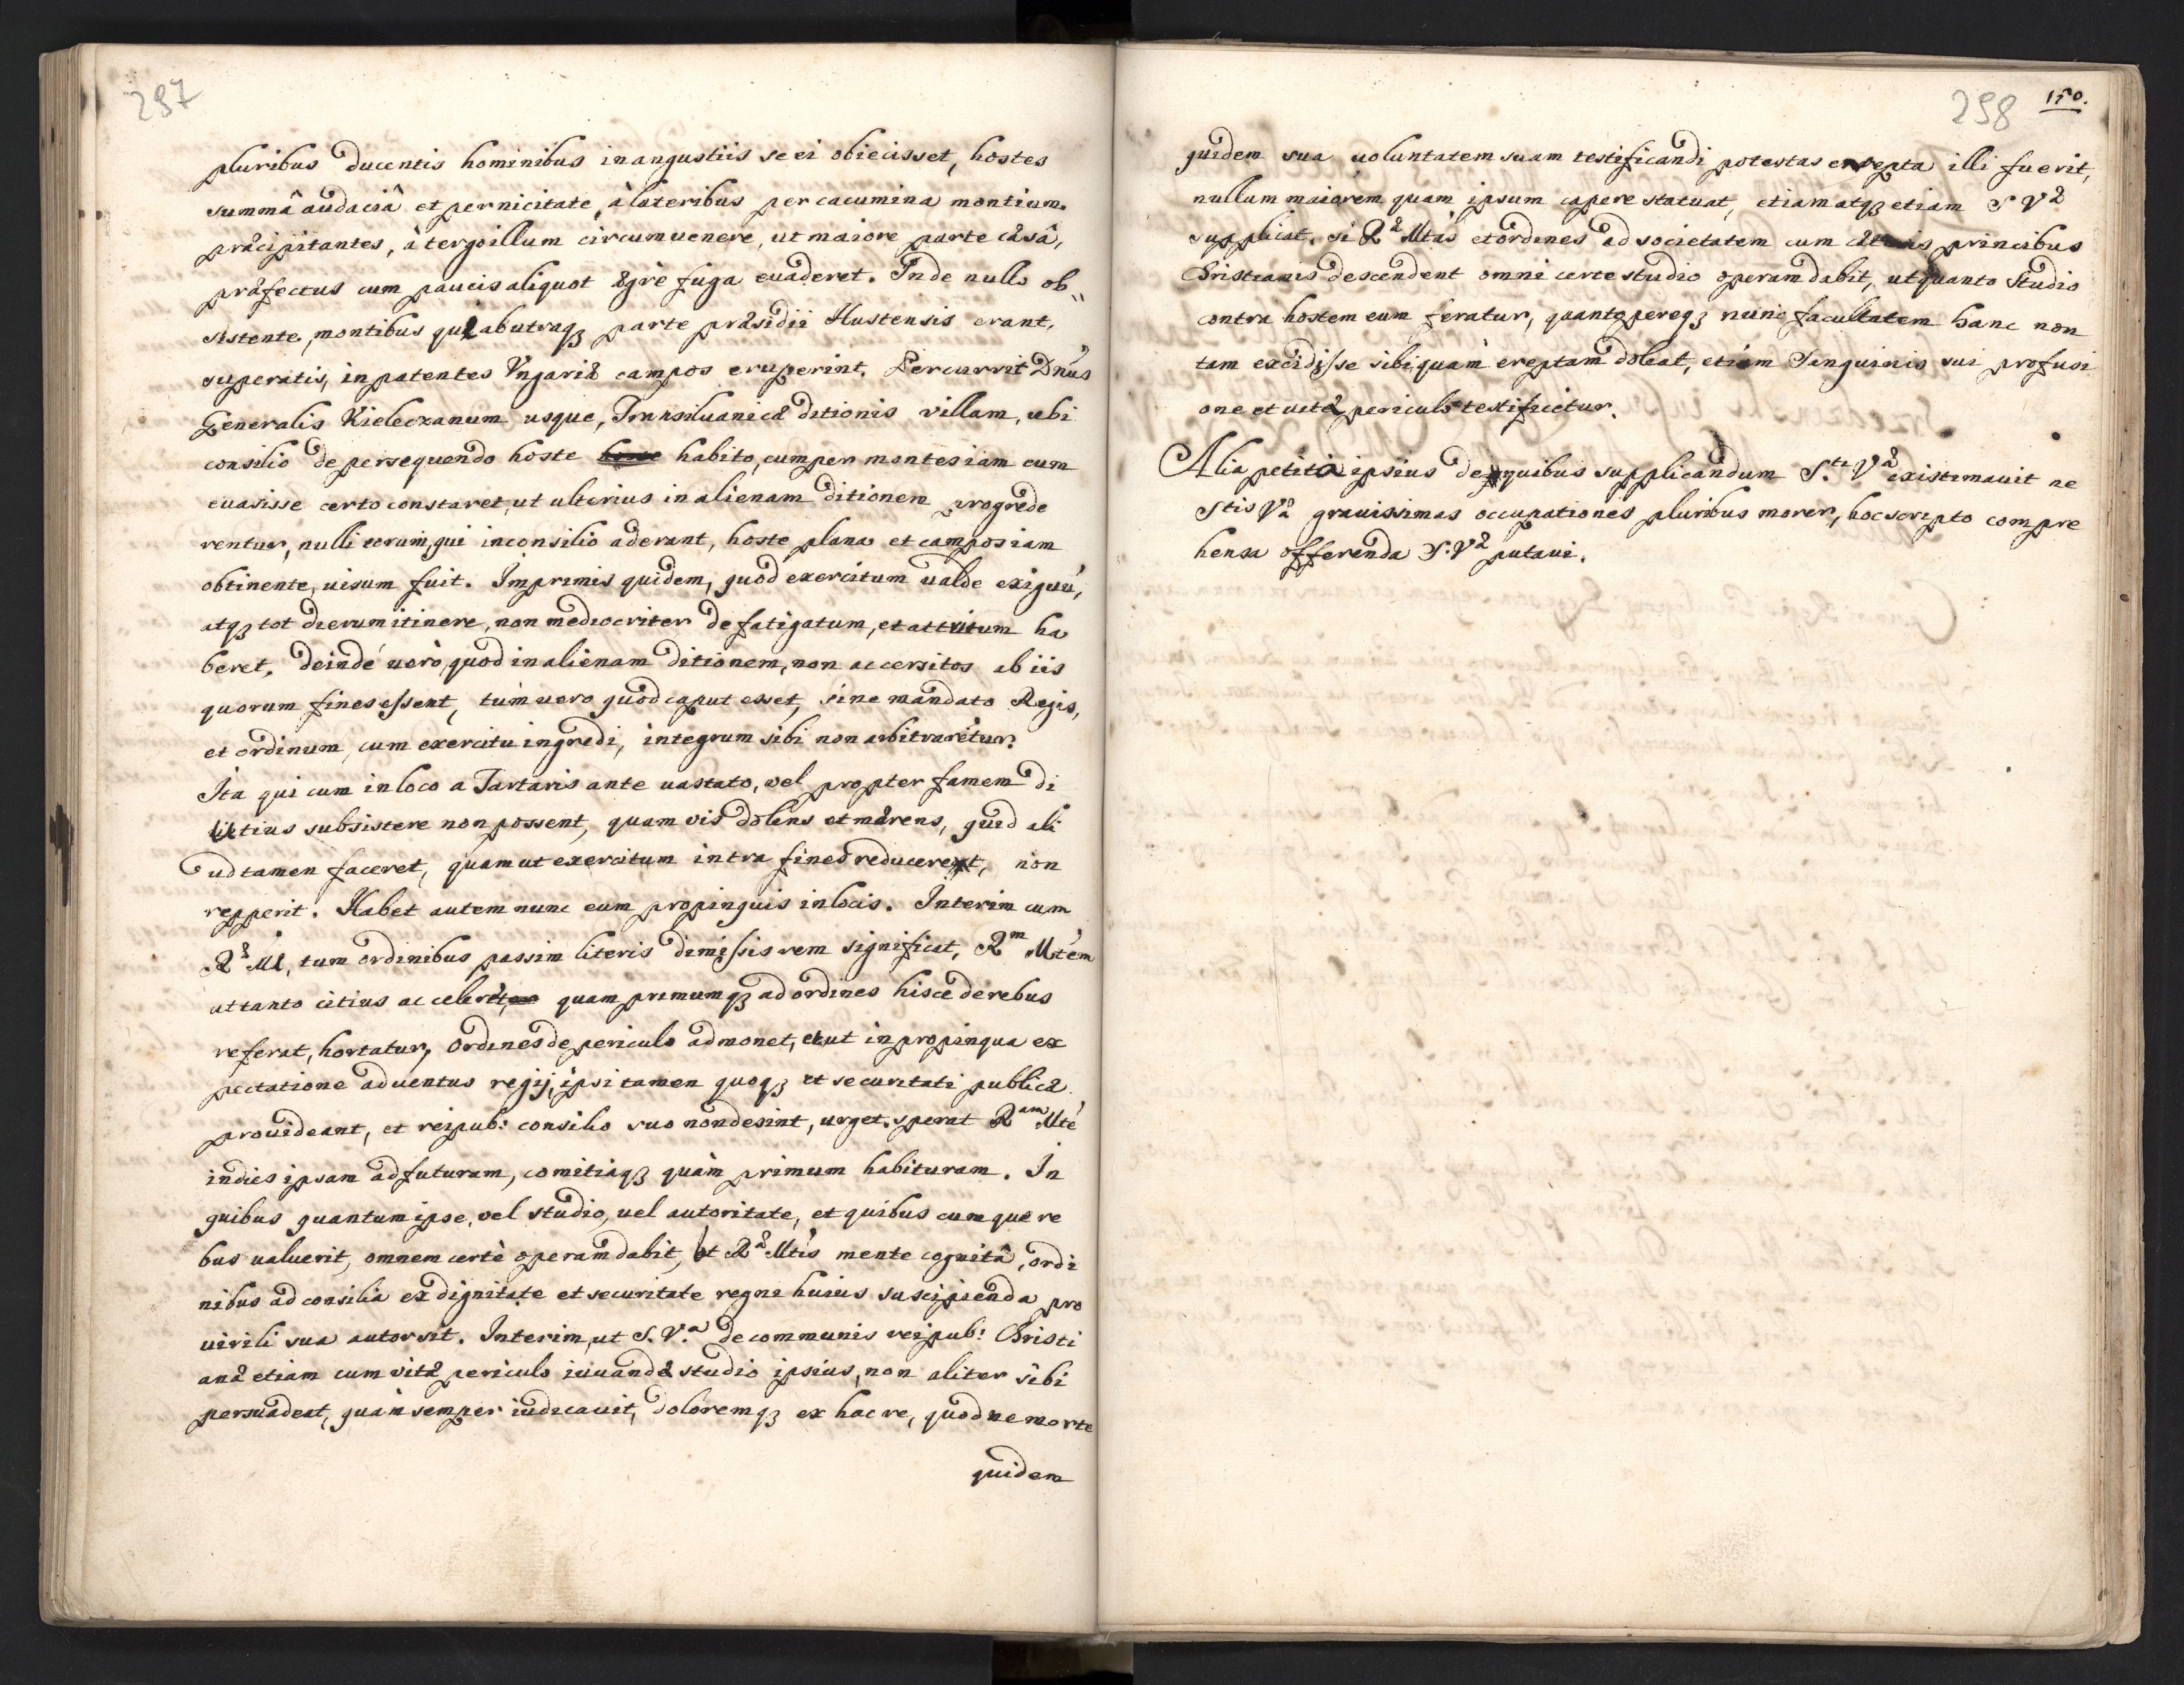 297
pluribus ducentis hominibus in angustiis se ei obiecisset, hostes
summâ audaciâ et pernicitate, à lateribus per cacumina montium
præcipitantes, à tergo illum circumuenere, ut maiore parte cæsâ,
præfectus cum paucis aliquot ægrè fuga euaderet. Inde nullo ob„
sistente, montibus qui ab utraqꝫ parte præsidii Hustensis erant,
superatis, in patentes Vngariæ campos eruperint. Percurrit Dnús
Generalis Kieleczanum usque, Transiluanicæ ditionis villam, ubi
consilio de persequendo hoste habito, cum per montes iam eum
euasisse certo constaret, ut ulterius in alienam ditionem progrede
rentur, nulli eorum, qui in consilio aderant, hoste plana et campos iam
obtinente, uisum fuit. Imprimis quidem, quod exercitum ualde exiguú,
atqꝫ tot dierum itinere, non mediocriter defatigatum, et attritum ha
beret, deindé uerò, quod in alienam ditionem, non accersitos ab iis
quorum fines essent, tùm uero quod caput esset, sine mandato Regis,
et ordinum, cum exercitu ingredi, integrum sibi non arbitraretur.
Ita qui cum in loco a Tartaris ante uastato, vel propter famem di
utius subsistere non possent, quamvis dolens et mærens, quid ali
ud tamen faceret, quam ut exercitum intra fines reduceret, non
repperit. Habet autem nunc eum propinquis in locis. Interim cum
Rᵃ M, tum ordinibus passim literis dimissis rem significat, Rᵐ Mtém
ut tanto citius acceleret, quam primumqꝫ ad ordines hisce de rebus
referat, hortatur, ordines de periculo admonet, et ut in propinqua ex
pectatione aduentus regij, ipsi tamen quoqꝫ et securitati publicæ
prouideant, et reipub: consilio suo non desint, urget. sperat Rᵃᵐ Mté
indies ipsam adfuturam, comitiaqꝫ quàm primum habituram. In
quibus quantum ipse, vel studio, uel autoritate, et quibus cumque re
bus ualuerit, omnem certè operam dabit, ut Rᵃ Mtis mente cognitâ, ordi
nibus ad consilia ex dignitate et securitate regni huius suscipienda pro
uirili sua autor sit. Interim, ut S. V.ᵃ de communis reipub: Christi
anæ etiam cum vitæ periculo iuuandæ studio ipsius, non aliter sibi
persuadeat, quàm semper iudicauit, doloremqꝫ ex hac re, quod ne morte
quidem
298 150.
quidem sua uoluntatem suam testificandi potestas erepta illi fuerit,
nullum maiorem quam ipsum capere statuat, etiam atqꝫ etiam S Vᵃ
supplicat, si Rᵃ Mtas et ordines ad societatem cum cæteris principibus
Christianis descendent omni certe studio operam dabit, ut quanto studio
contra hostem eum feratur, quantopereqꝫ nunc facultatem hanc non
tam excidisse sibi quam ereptam doleat, etiam sanguinis sui profusi
one et uitæ periculo testificetur.
Alia petita ipsius de quibus supplicandum S.ᵗⁱ Vᵃ existimauit ne
Stis Vᵃ grauissimas occupationes pluribus morer, hoc scripto compre
hensa offerenda S. Vᵃ putaui.